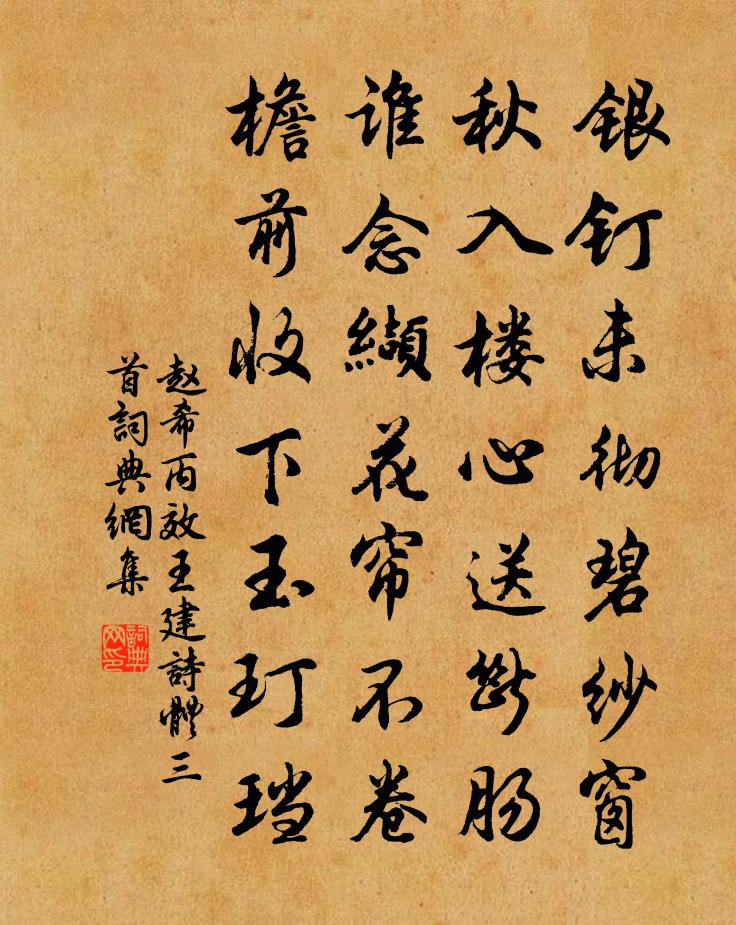 银钉未彻碧纱窗
秋入楼心送断肠
谁念缬花帘不卷
檐前收下玉玎珰
赵希丙效王建詩體三
首詞典網集
詞典网印